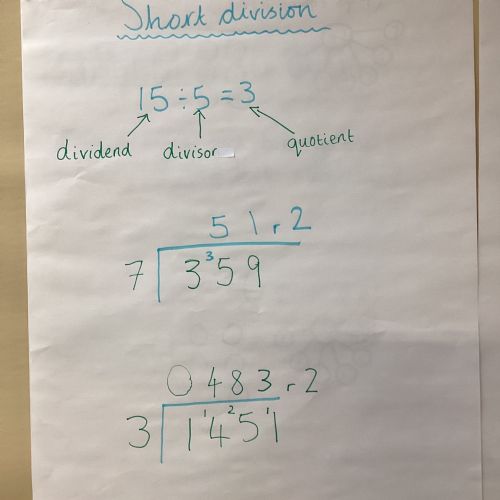 Short division
15 ÷ 5 = 3
dividend divisor quotient
51 r 2
7 3 ³59
0483 r 2
3 1 ¹4 ²5 ¹1